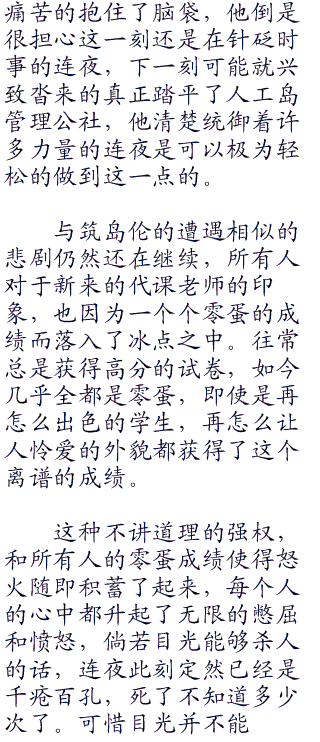 痛苦的抱住了脑袋，他倒是
很担心这一刻还是在针砭时
事的连夜，下一刻可能就兴
致沓来的真正踏平了人工岛
管理公社，他清楚统御着许
多力量的连夜是可以极为轻
松的做到这一点的。
与筑岛伦的遭遇相似的
悲剧仍然还在继续，所有人
对于新来的代课老师的印
象，也因为一个个零蛋的成
绩而落入了冰点之中。往常
总是获得高分的试卷，如今
几乎全都是零蛋，即使是再
怎么出色的学生，再怎么让
人怜爱的外貌都获得了这个
离谱的成绩。
这种不讲道理的强权，
和所有人的零蛋成绩使得怒
火随即积蓄了起来，每个人
的心中都升起了无限的憋屈
和愤怒，倘若目光能够杀人
的话，连夜此刻定然已经是
千疮百孔，死了不知道多少
次了。可惜目光并不能